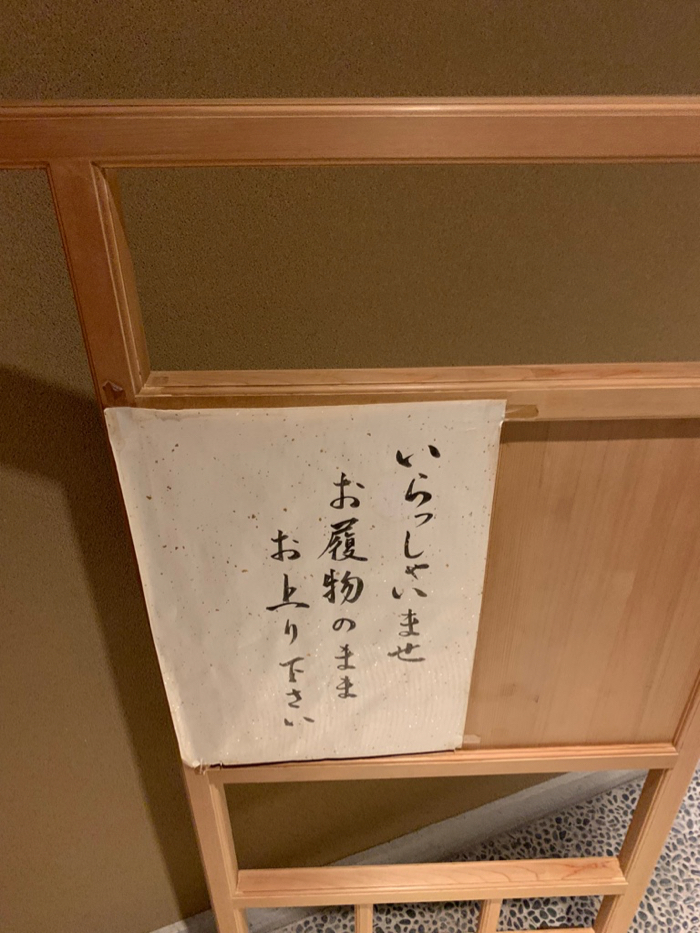 いらっしゃいませ
お履物のまま
お上り下さい